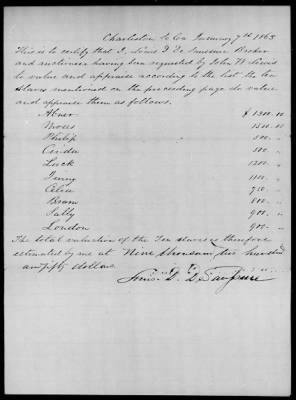 Charleston So Ca January 7th 1863
This is to certify that I, Louis D. De Saussure Broker
and auctioneer having been requested by John W. Lewis
to value and appraise according to the list the ten
slaves mentioned on the preceding page do value
and appraise them as follows.
Abner $ 1300.00
Moses 1500.00
Philip 500 "
Cinda 500 "
Luck 1200 "
Jenny 1100 "
Celia 750 "
Bram 800 "
Sally 900 "
London 900 "
The total valuation of the Ten slaves is therefore
estimated by me at Nine thousand five hundred
and fifty dollars.
Louis D. DeSaussure